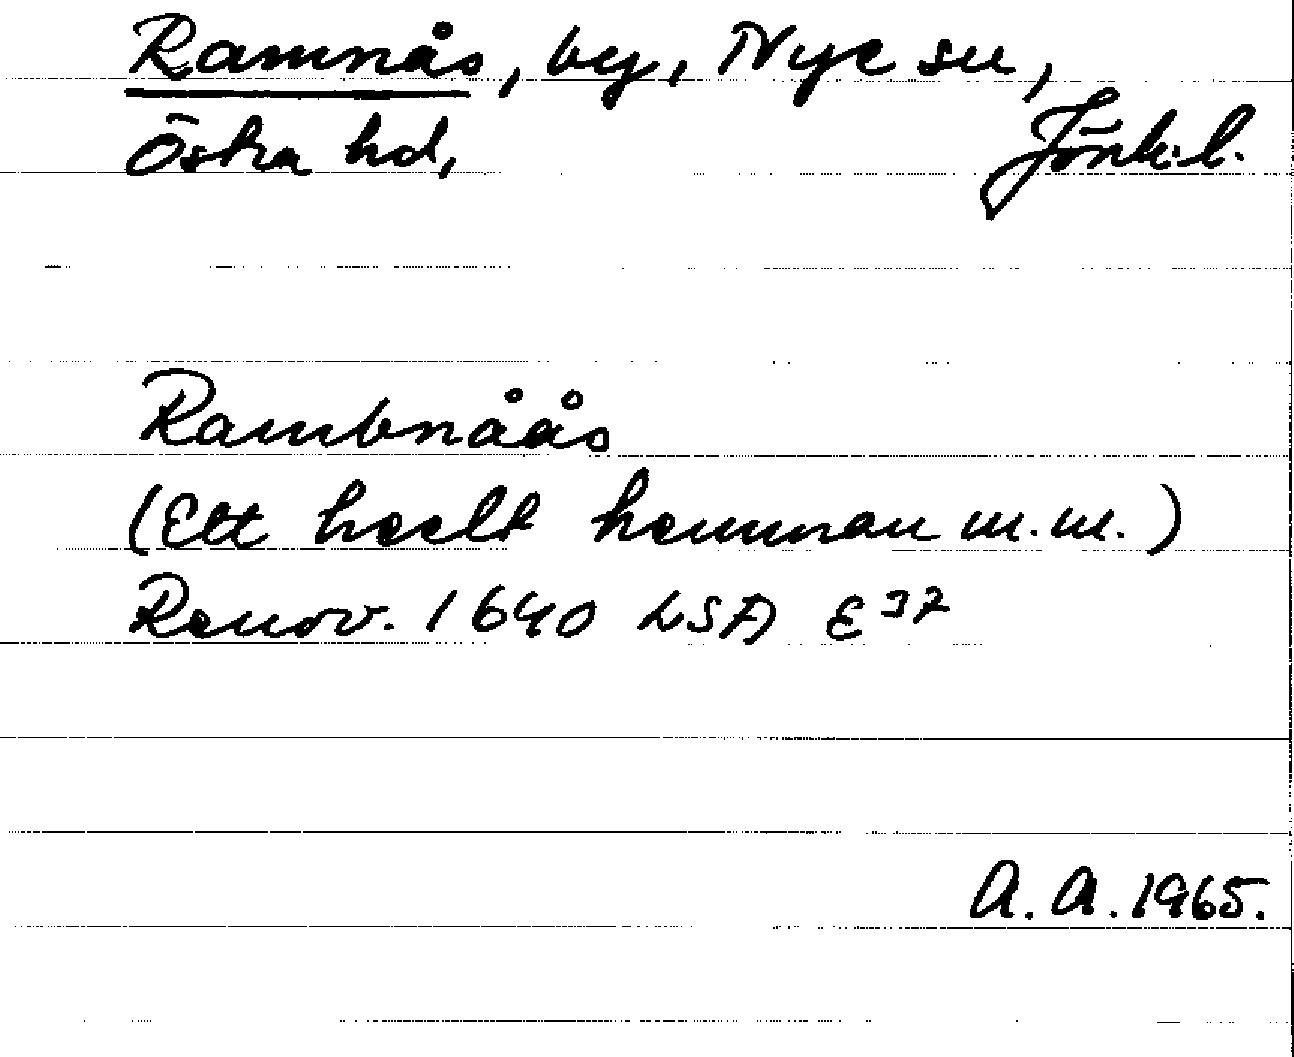 Ramnås, by, Nye sn,
Östra hd, Jönk.l.
Rambnåås
(Ett heelt hemman m.m.)
Renov. 1640 LSA E 37
A. A. 1965.